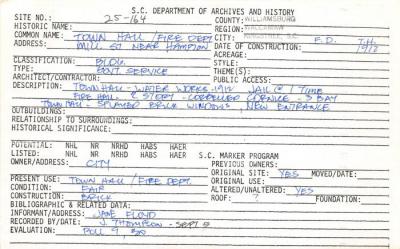 S.C. DEPARTMENT OF ARCHIVES AND HISTORY
SITE NO.: 25-164 COUNTY: WILLIAMSBURG
HISTORIC NAME: REGION:
COMMON NAME: TOWN HALL / FIRE DEPT CITY: F.D. T.H.
ADDRESS: MILL ST NEAR HAMPTON DATE OF CONSTRUCTION: 1912
ACREAGE:
CLASSIFICATION: BLDG. STYLE:
TYPE: GOVT. SERVICE THEME(S):
ARCHITECT/CONTRACTOR: PUBLIC ACCESS:
DESCRIPTION: TOWN HALL - WATER WORKS - 1912 JAIL @ 1 TIME
FIRE HALL 2 STORY - CORBELLED CORNICE - 3 BAY
TOWN HALL - SPLAYED BRICK WINDOWS, NEW ENTRANCE
OUTBUILDINGS:
RELATIONSHIP TO SURROUNDINGS:
HISTORICAL SIGNIFICANCE:
POTENTIAL: NHL NR NRHD HABS HAER
LISTED: NHL NR NRHD HABS HAER S.C. MARKER PROGRAM
OWNER/ADDRESS: CITY PREVIOUS OWNERS:
ORIGINAL SITE: YES MOVED/DATE:
PRESENT USE: TOWN HALL / FIRE DEPT. ORIGINAL USE:
CONDITION: FAIR ALTERED/UNALTERED: YES
CONSTRUCTION: BRICK ROOF: FOUNDATION:
BIBLIOGRAPHIC & RELATED DATA:
INFORMANT/ADDRESS: JANE FLOYD
RECORDED BY/DATE: J. THOMPSON - SEPT 8
EVALUATION: ROLL 9, 30